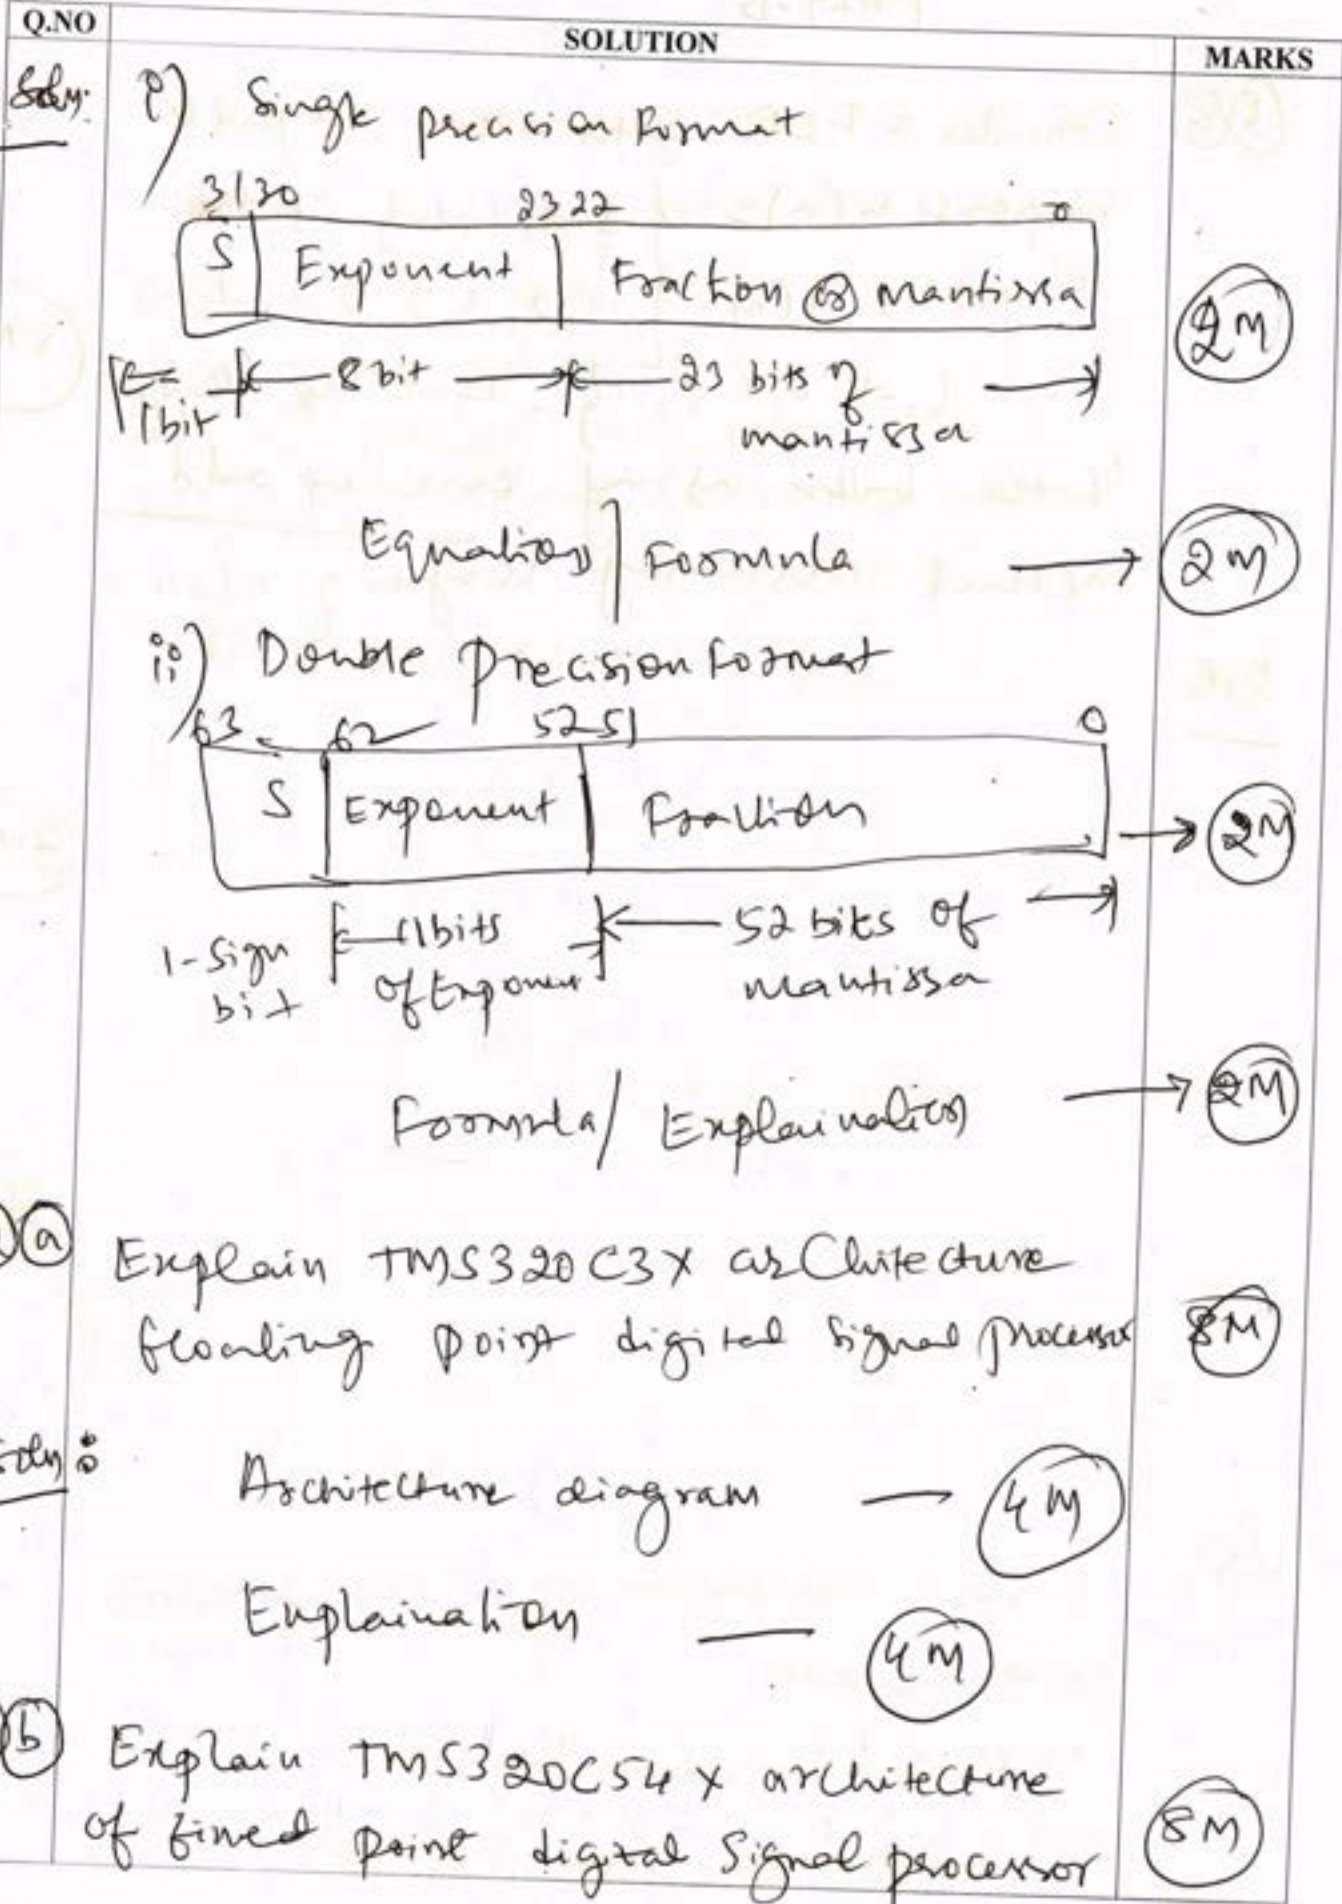 Q.NO SOLUTION MARKS
Soln: i) Single precision Format
31 30 23 22 0
S Exponent Fraction or mantissa 2M
1bit 8 bit 23 bits of
mantissa
Equation / Formula → 2M
ii) Double precision Format
63 62 52 51 0
S Exponent Fraction → 2M
1-Sign bit 11bits of Exponent 52 bits of mantissa
Formula / Explaination → 2M
a Explain TMS320C3X architecture
floating point digital signal processor 8M
Soln: Architecture diagram — 4M
Explaination — 4M
b Explain TMS320C54X architecture
of fixed point digital Signal processor 8M